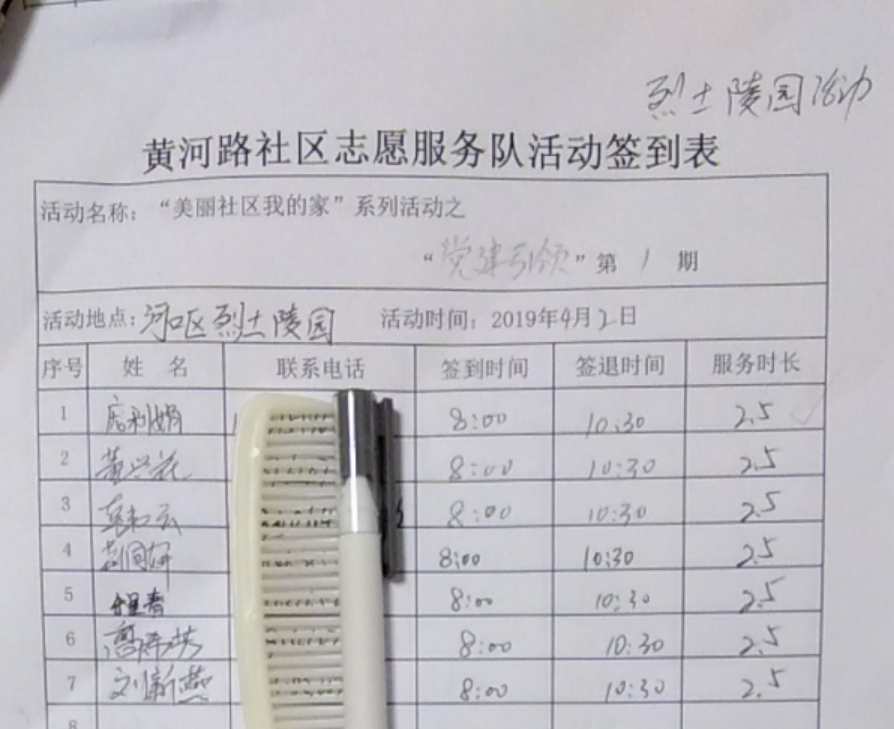 烈士陵园活动
黄河路社区志愿服务队活动签到表
活动名称：“美丽社区我的家”系列活动之
“党建引领”第 1 期
活动地点：河口区烈士陵园 活动时间：2019年4月2日
序号 姓 名 联系电话 签到时间 签退时间 服务时长
1 8:00 10:30 2.5
2 8:00 10:30 2.5
3 8:00 10:30 2.5
4 8:00 10:30 2.5
5 8:00 10:30 2.5
6 8:00 10:30 2.5
7 刘新燕 8:00 10:30 2.5
8